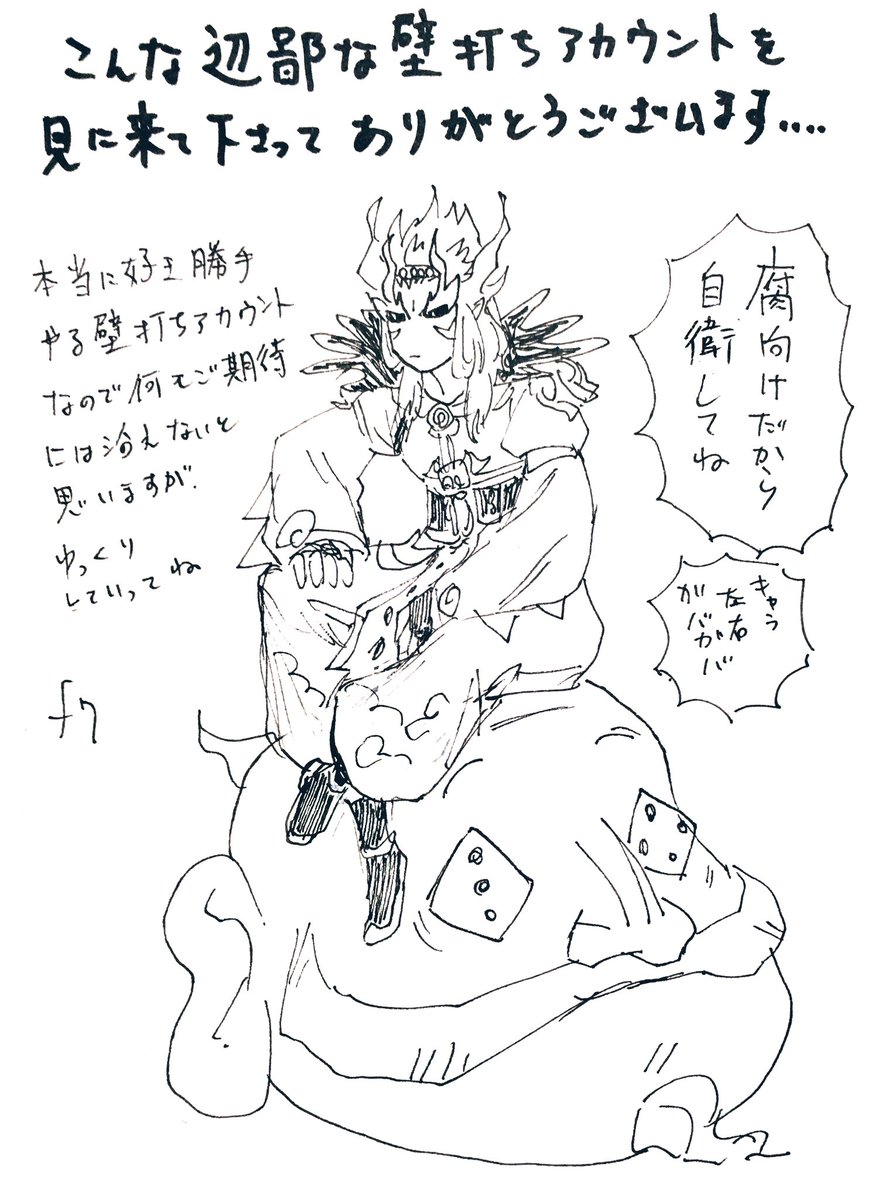 こんな辺鄙な壁打ちアカウントを
見に来て下さってありがとうございます....
本当に好き勝手
やる壁打ちアカウント
なので何もご期待
には沿えないと
思いますが、
ゆっくり
していってね
腐向けだから
自衛してね
キャラ
左右
ガバガバ